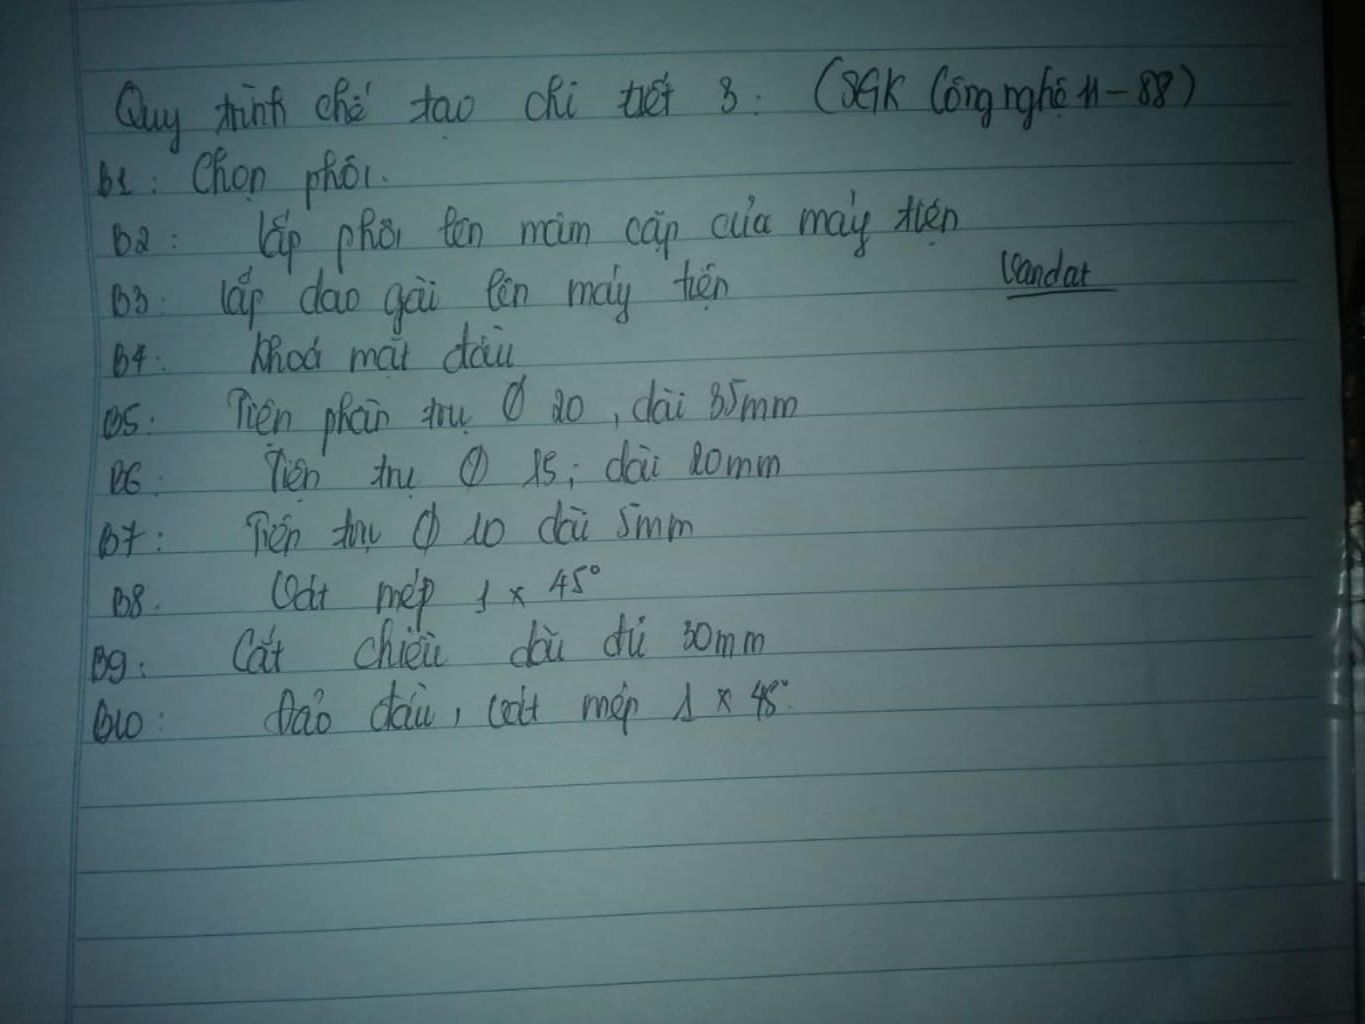 Quy trình chế tạo chi tiết 3: (SGK Công nghệ 11-88)
B1: Chọn phôi.
B2: lắp phôi lên mâm cặp của máy tiện
B3: lắp dao gài lên máy tiện
Vandat
B4: Khoả mặt đầu
B5: Tiện phần trụ Ø 20, dài 35mm
B6: Tiện trụ Ø 15; dài 20mm
B7: Tiện trụ Ø 10 dài 5mm
B8: Vát mép 1 x 45°
B9: Cắt chiều dài đủ 30mm
B10: Đảo đầu, vát mép 1 x 45°